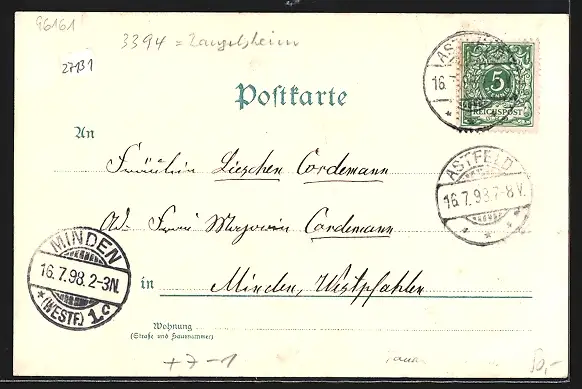 96161
3394 = Langelsheim
27131
ASTFELD
16.7.98
5
REICHSPOST
Postkarte
An
Fräulein Lieschen Cordemann
ASTFELD
16.7.98.7-8V.
Ad. Frau Majorin Cordemann
MINDEN
16.7.98.2-3N.
*(WESTF.) 1.c
in Minden, Westphalen
Wohnung
(Straße und Hausnummer)
+7-1
50,-